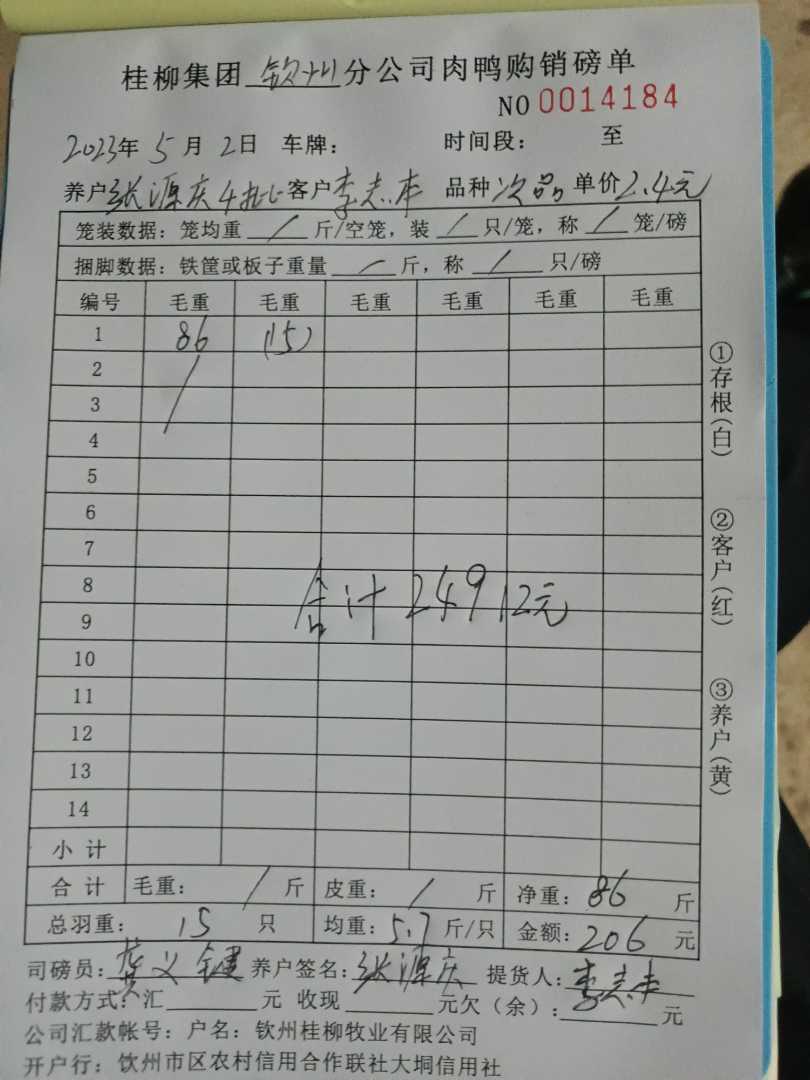 桂柳集团 钦州 分公司肉鸭购销磅单
NO 0014184
2023年 5 月 2日 车牌： 时间段： 至
养户 张源庆4批 客户 李志丰 品种 次品 单价 2.4元
笼装数据：笼均重 / 斤/空笼，装 / 只/笼，称 / 笼/磅
捆脚数据：铁筐或板子重量 / 斤，称 / 只/磅
编号 毛重 毛重 毛重 毛重 毛重 毛重
1 86 (15)
2
3
4
5
6
7
8
合计 24912元
9
10
11
12
13
14
小 计
合 计 毛重： / 斤 皮重： / 斤 净重：86 斤
总羽重： 15 只 均重：5.7 斤/只 金额：206 元
司磅员：龚义键 养户签名：张源庆 提货人：李志丰
付款方式：汇 元 收现 元欠（余）： 元
公司汇款帐号：户名：钦州桂柳牧业有限公司
开户行：饮州市区农村信用合作联社大垌信用社
①存根（白）
②客户（红）
③养户（黄）